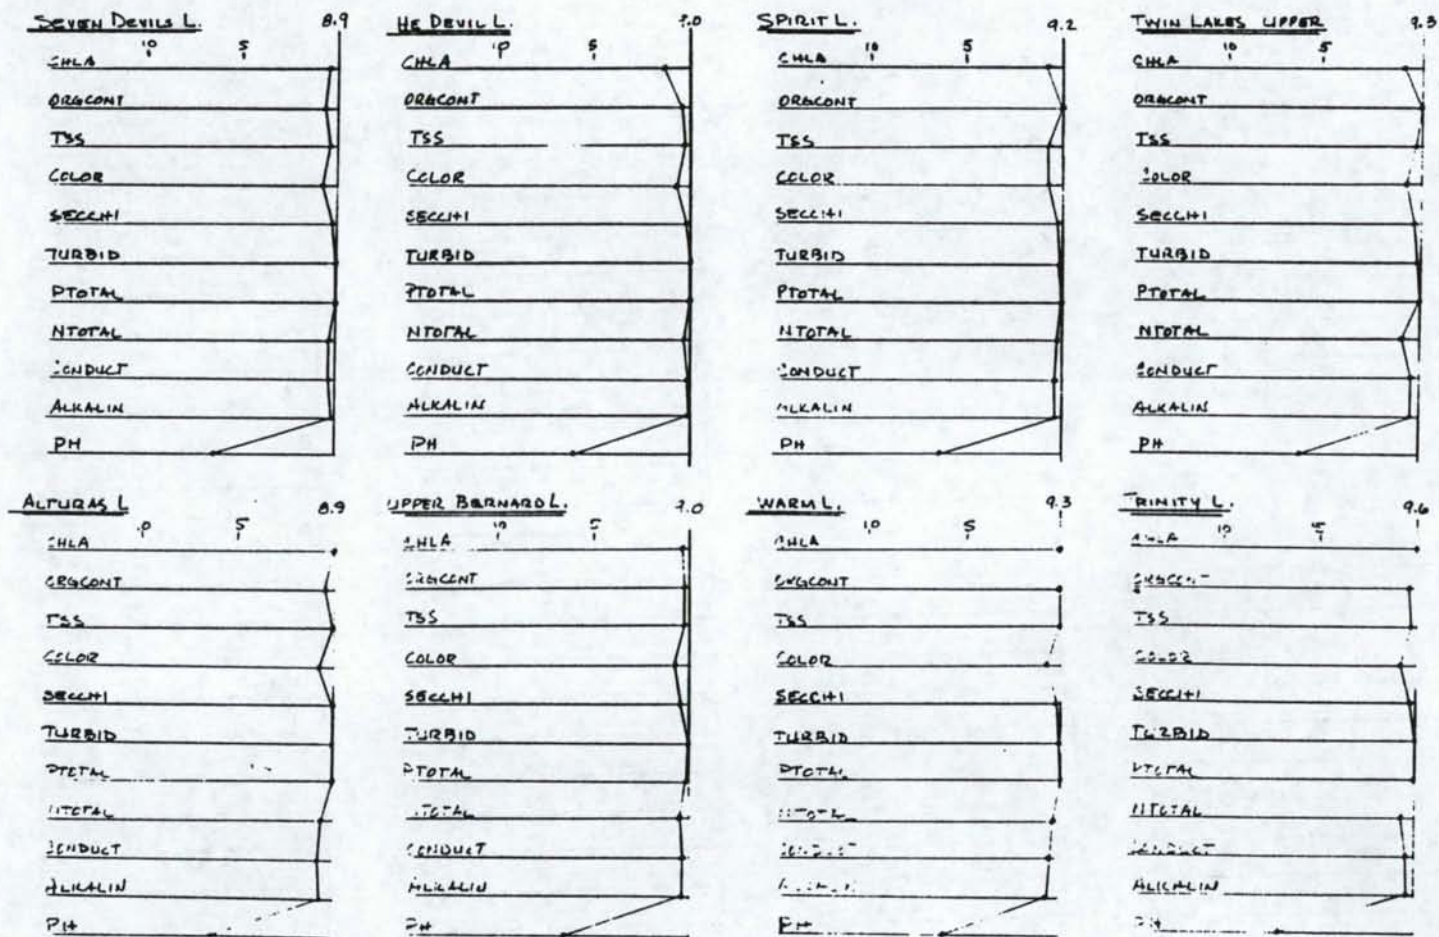 SEVEN DEVILS L. 8.9
10 5
CHLA
ORGCONT
TSS
COLOR
SECCHI
TURBID
PTOTAL
NTOTAL
CONDUCT
ALKALIN
PH
HE DEVIL L. 9.0
5
CHLA
ORGCONT
TSS
COLOR
SECCHI
TURBID
PTOTAL
NTOTAL
CONDUCT
ALKALIN
PH
SPIRIT L. 9.2
10 5
CHLA
ORGCONT
TSS
COLOR
SECCHI
TURBID
PTOTAL
NTOTAL
CONDUCT
ALKALIN
PH
TWIN LAKES UPPER 9.3
10 5
CHLA
ORGCONT
TSS
COLOR
SECCHI
TURBID
PTOTAL
NTOTAL
CONDUCT
ALKALIN
PH
ALTURAS L 8.9
5
CHLA
ORGCONT
TSS
COLOR
SECCHI
TURBID
PTOTAL
NTOTAL
CONDUCT
ALKALIN
PH
UPPER BERNARD L. 9.0
10 5
CHLA
ORGCONT
TSS
COLOR
SECCHI
TURBID
PTOTAL
NTOTAL
CONDUCT
ALKALIN
PH
WARM L. 9.3
10 5
CHLA
ORGCONT
TSS
COLOR
SECCHI
TURBID
PTOTAL
PH
TRINITY L. 9.6
10
ORGCONT
TSS
COLOR
SECCHI
TURBID
PTOTAL
NTOTAL
CONDUCT
ALKALIN
PH